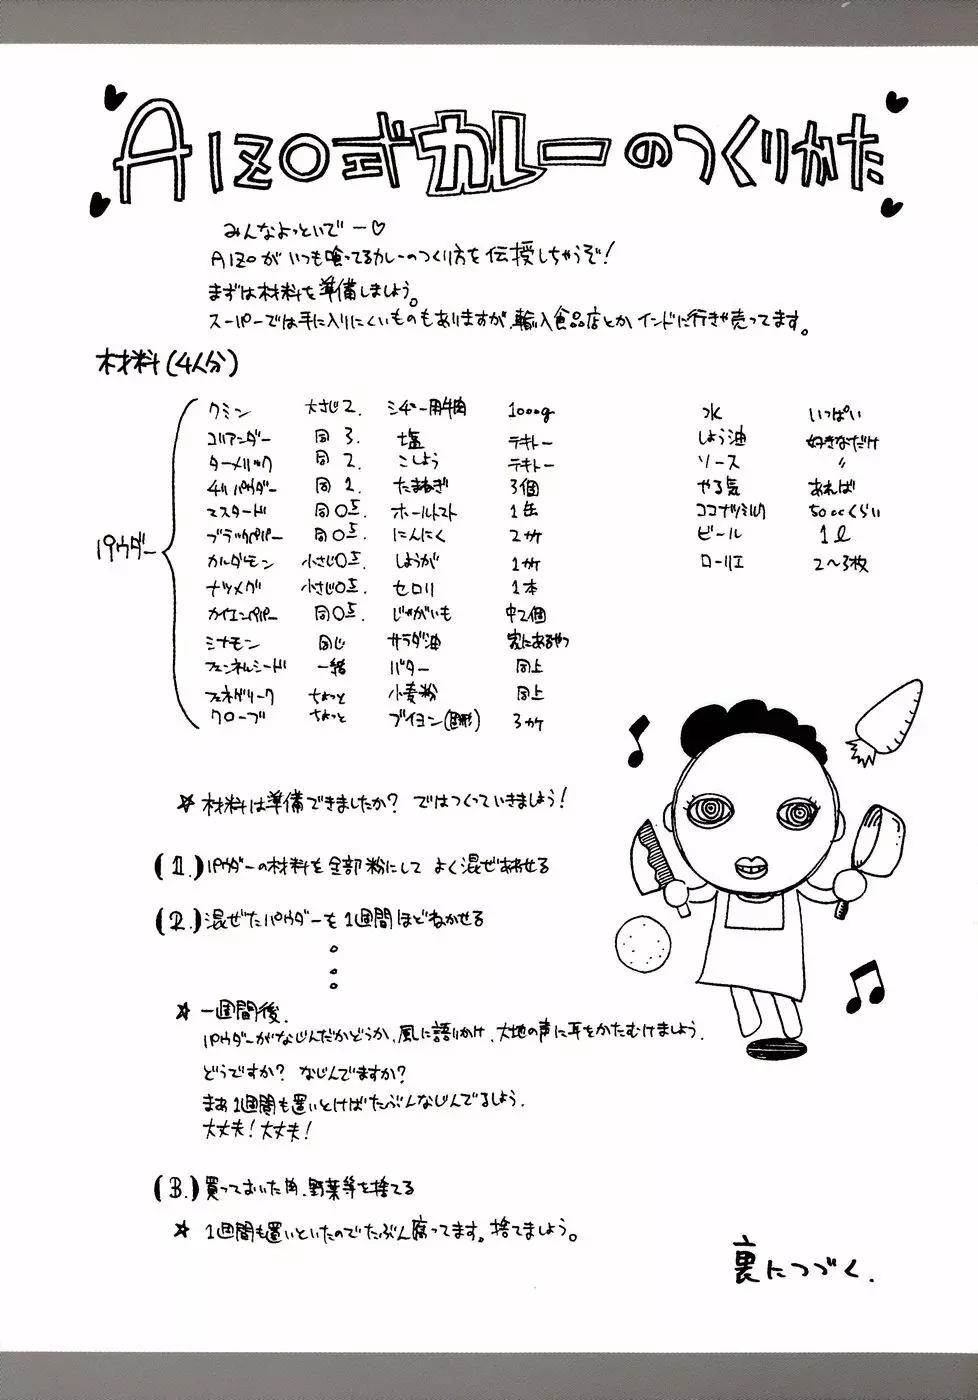 AIZO式カレーのつくりかた
みんなよっといでー♡
AIZOがいつも喰ってるカレーのつくり方を伝授しちゃうぞ!
まずは材料を準備しましょう。
スーパーでは手に入りにくいものもありますが、輸入食品店とかインドに行きゃ売ってます。
材料(4人分)
パウダー
クミン 大さじ2.
コリアンダー 同 3.
ターメリック 同 2.
チリパウダー 同 1.
マスタード 同 0.5.
ブラックペパー 同 0.5.
カルダモン 小さじ0.5.
ナツメグ 小さじ0.5.
カイエンペパー 同 0.5.
シナモン 同じ
フェンネルシード 一緒
フェネグリーク ちょっと
クローブ ちょっと
シチュー用牛肉 1000g
塩 テキトー
こしょう テキトー
たまねぎ 3個
ホールトマト 1缶
にんにく 2ケ
しょうが 1ケ
セロリ 1本
じゃがいも 中2個
サラダ油 家にあるやつ
バター 同上
小麦粉 同上
ブイヨン(固形) 3ケ
水 いっぱい
しょう油 好きなだけ
ソース 〃
やる気 あれば
ココナツミルク 500ccくらい
ビール 1ℓ
ローリエ 2〜3枚
☆ 材料は準備できましたか? ではつくっていきましょう!
(1.) パウダーの材料を全部粉にして よく混ぜあわせる
(2.) 混ぜたパウダーを1週間ほどねかせる
☆ 一週間後.
パウダーがなじんだかどうか、風に語りかけ、大地の声に耳をかたむけましょう.
どうですか? なじんでますか?
まぁ1週間も置いとけばたぶんなじんでるしょう.
大丈夫!大丈夫!
(3.) 買っておいた肉、野菜等を捨てる
☆ 1週間も置いといたのでたぶん腐ってます。捨てましょう。
裏につづく.